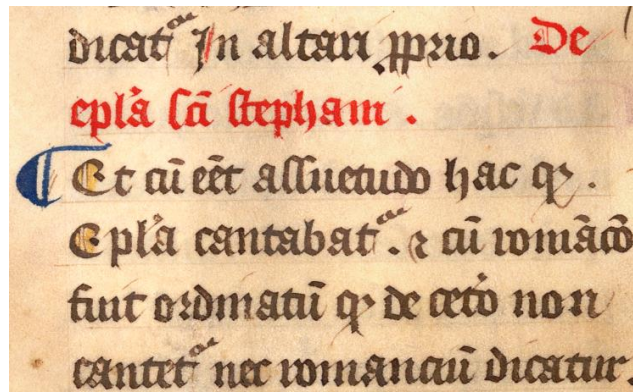 dicat᷒ In altari ꝓprio. De
epl̃a sc̃i stephani.
Et cũ eẽt assuetudo hac qꝫ.
Epl̃a cantabat᷒. ⁊ cũ romãcõ
fuit ordinatũ qꝫ de cetõ non
cantet᷒ nec romanciũ dicatur.